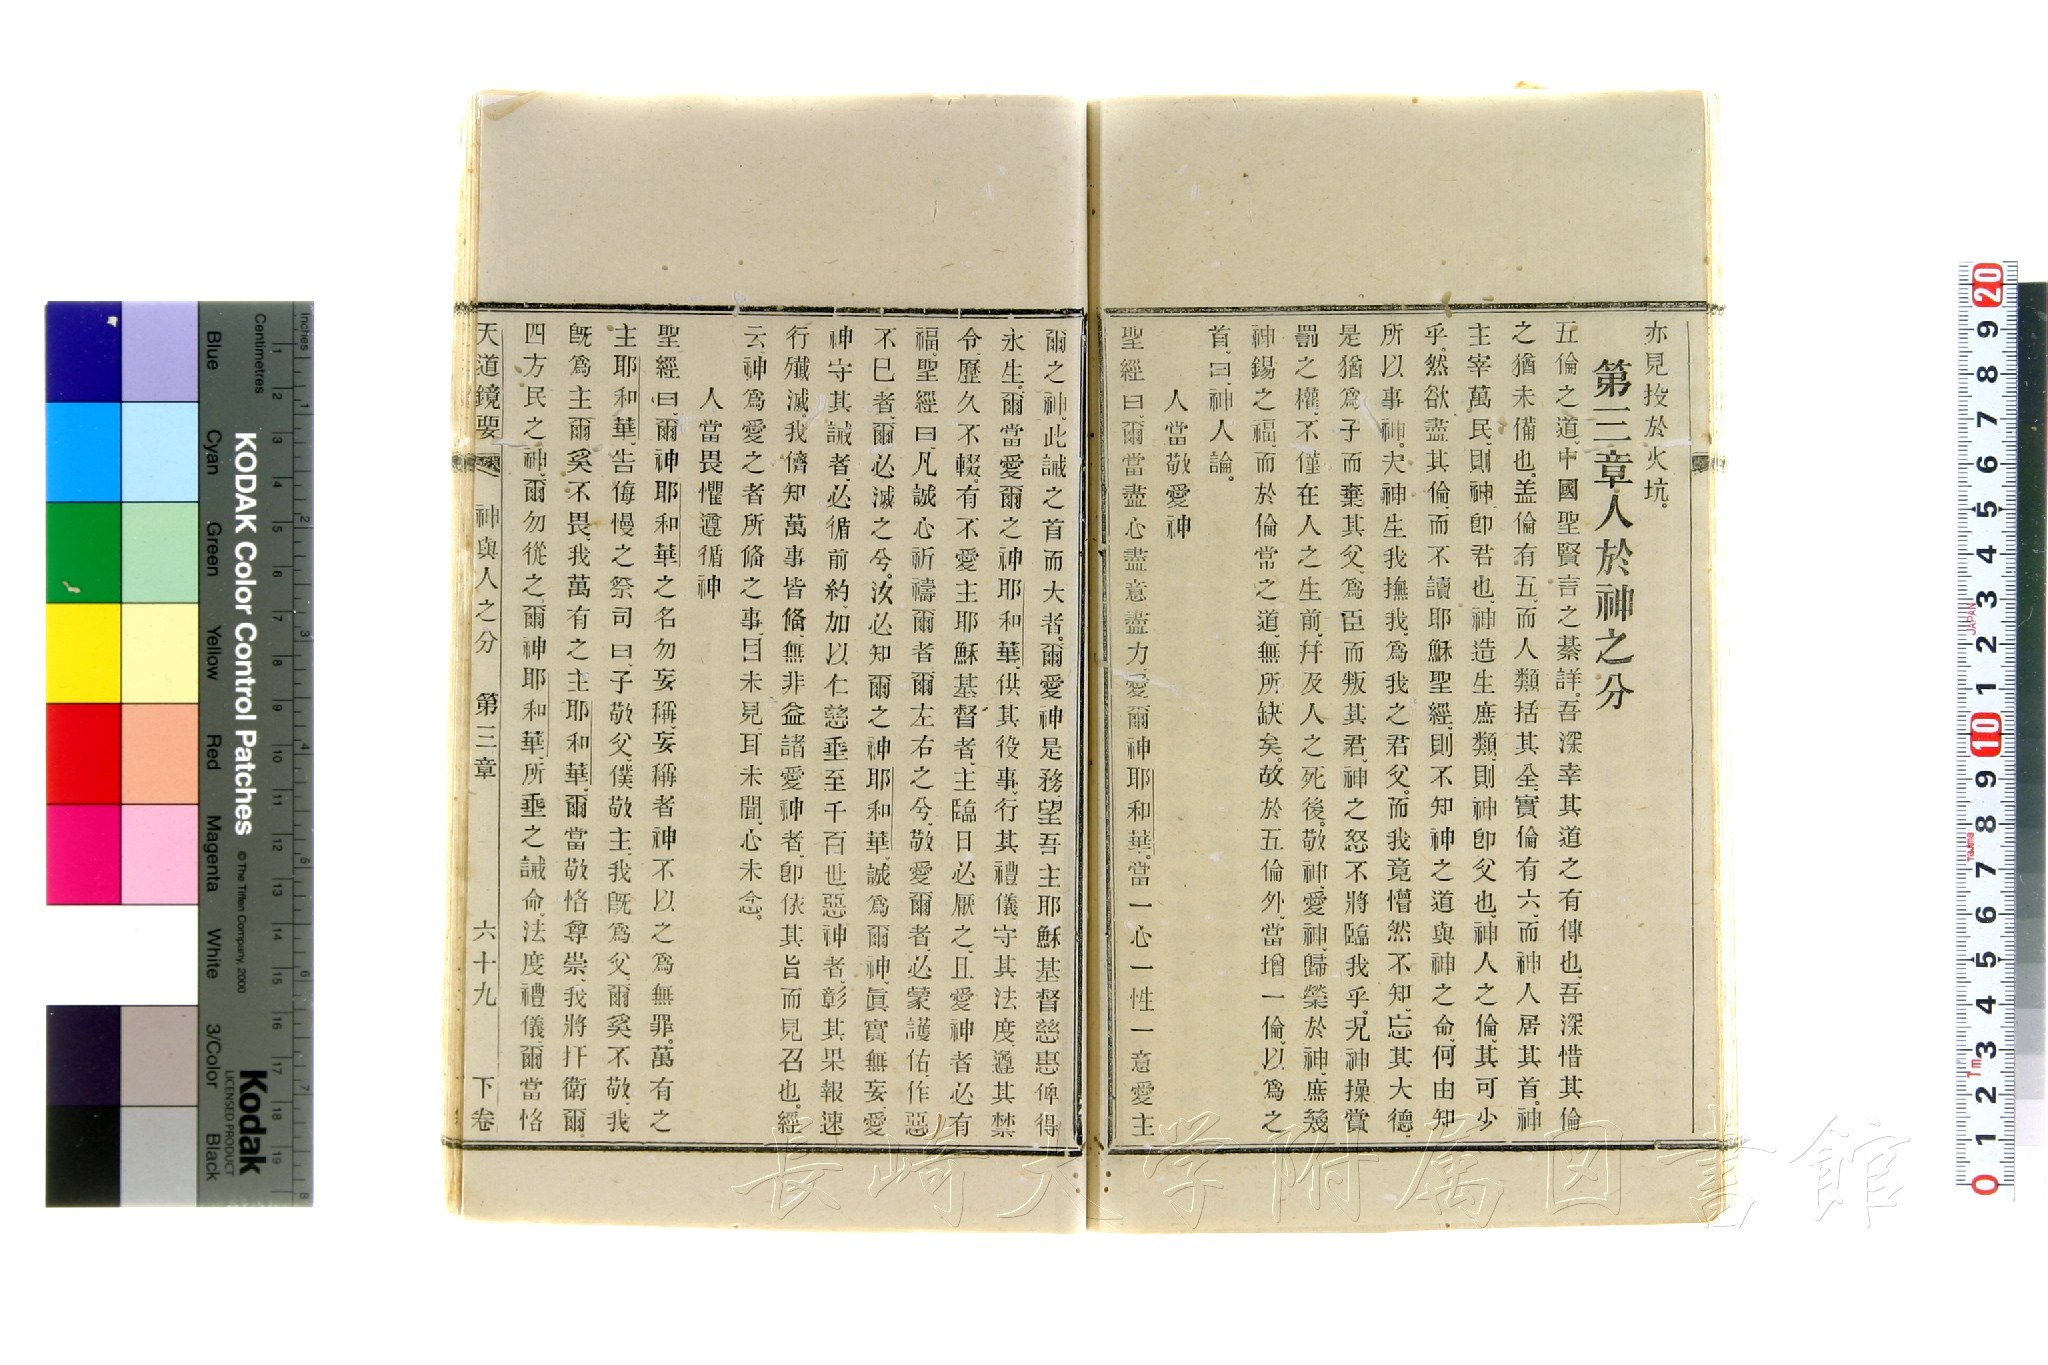 亦見投於火坑。
第三章人於神之分
五倫之道、中國聖賢言之綦詳。吾深幸其道之有傳也、吾深惜其倫
之猶未備也。盖倫有五、而人類括其全、實倫有六、而神人居其首。神
主宰萬民、則神卽君也、神造生庶類、則神卽父也、神人之倫、其可少
乎。然欲盡其倫、而不讀耶穌聖經、則不知神之道與神之命、何由知
所以事神。夫神生我撫我、爲我之君父。而我竟懵然不知、忘其大德、
是猶爲子而棄其父、爲臣而叛其君、神之怒不將臨我乎。况神操賞
罰之權、不僅在人之生前、幷及人之死後。敬神、愛神、歸榮於神、庶幾
神錫之福、而於倫常之道、無所缺矣。故於五倫外、當增一倫、以爲之
首、曰、神人論。
人當敬愛神
聖經曰、爾當盡心盡意盡力、愛爾神耶和華。當一心一性一意愛主
爾之神、此誡之首而大者。爾愛神是務、望吾主耶穌基督慈惠俾得
永生。爾當愛爾之神耶和華、供其役事、行其禮儀、守其法度、遵其禁
令、歷久不輟。有不愛主耶穌基督者、主臨日必厭之、且愛神者必有
福。聖經曰、凡誠心祈禱爾者、爾左右之兮、敬愛爾者、必蒙護佑、作惡
不已者、爾必滅之兮。汝必知爾之神耶和華、誠爲爾神、眞實無妄、愛
神守其誡者、必循前約、加以仁慈、垂至千百世、惡神者、彰其果報、速
行殲滅、我儕知萬事皆偹、無非益諸愛神者、卽依其旨而見召也、經
云、神爲愛之者所偹之事、目未見、耳未聞、心未念。
人當畏懼遵循神
聖經曰、爾神耶和華之名勿妄稱、妄稱者神不以之爲無罪。萬有之
主耶和華、告侮慢之祭司曰、子敬父、僕敬主、我旣爲父、爾奚不敬、我
旣爲主爾奚不畏、我萬有之主耶和華、爾當敬恪尊崇、我將扞衛爾、
四方民之神、爾勿從之、爾神耶和華、所垂之誡命、法度禮儀、爾當恪
天道鏡要 神與人之分 第三章 六十九 下卷
長崎大学附属図書館
KODAK Color Control Patches
© The Tiffen Company, 2000
Kodak
LICENSED PRODUCT
Inches
Centimetres
Blue
Cyan
Green
Yellow
Red
Magenta
White
3/Color
Black
1 2 3 4 5 6 7 8 9 10 11 12 13 14 15 16 17 18 19
1 2 3 4 5 6 7 8
20 9 8 7 6 5 4 3 2 1 10 9 8 7 6 5 4 3 2 1 0
JAPAN